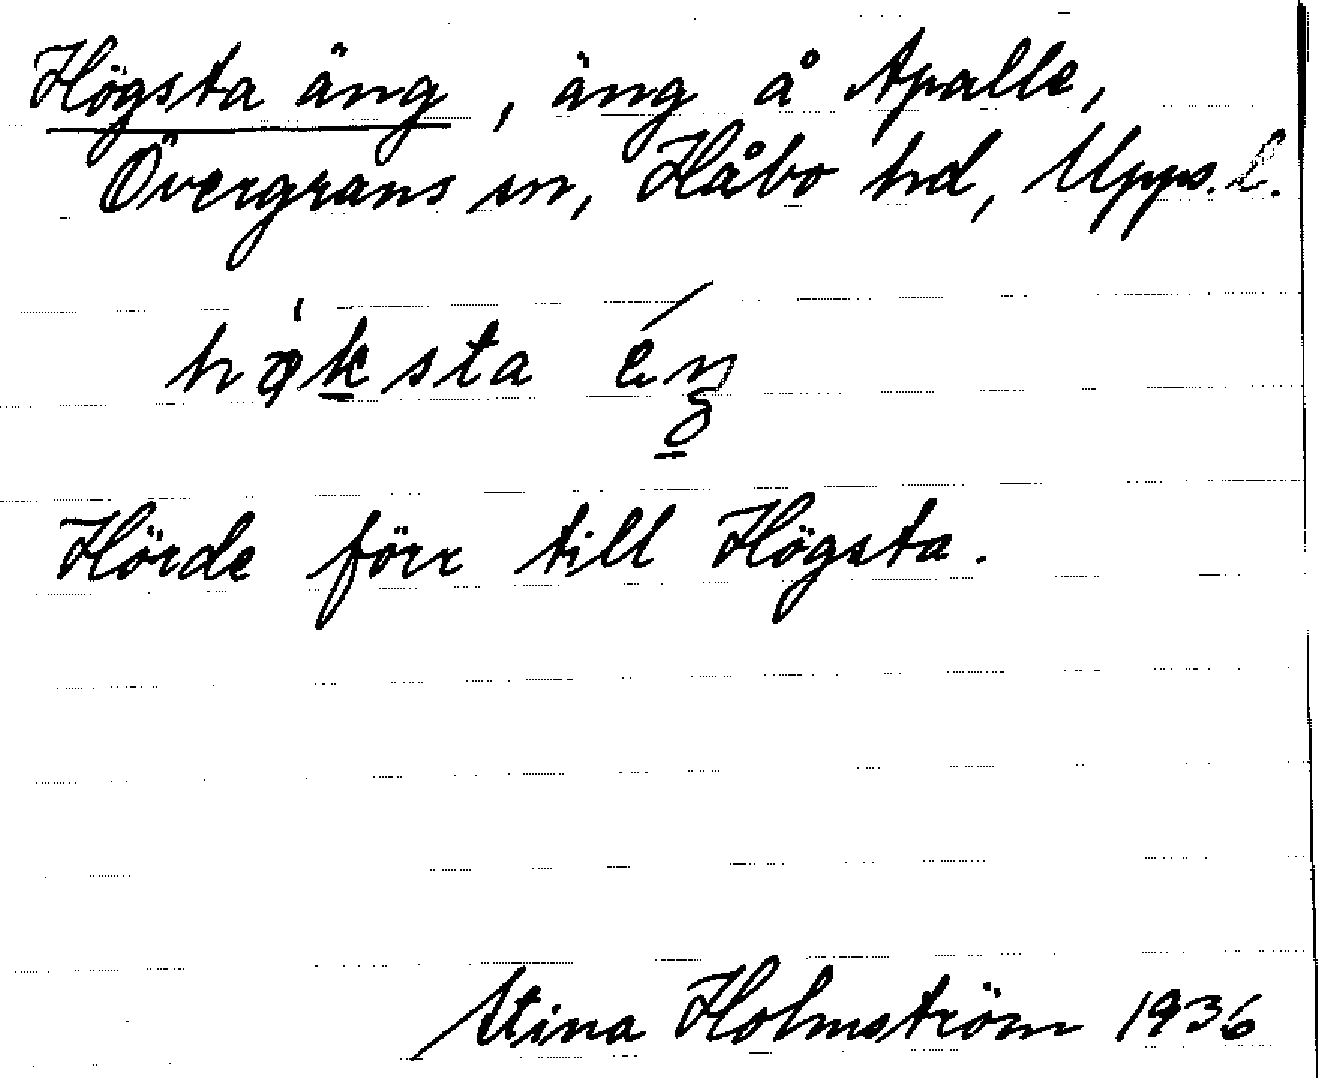 Högsta äng, äng å Apalle,
Övergrans sn, Håbo hd, Upps. l.
Hörde förr till Högsta.
Stina Holmström 1936